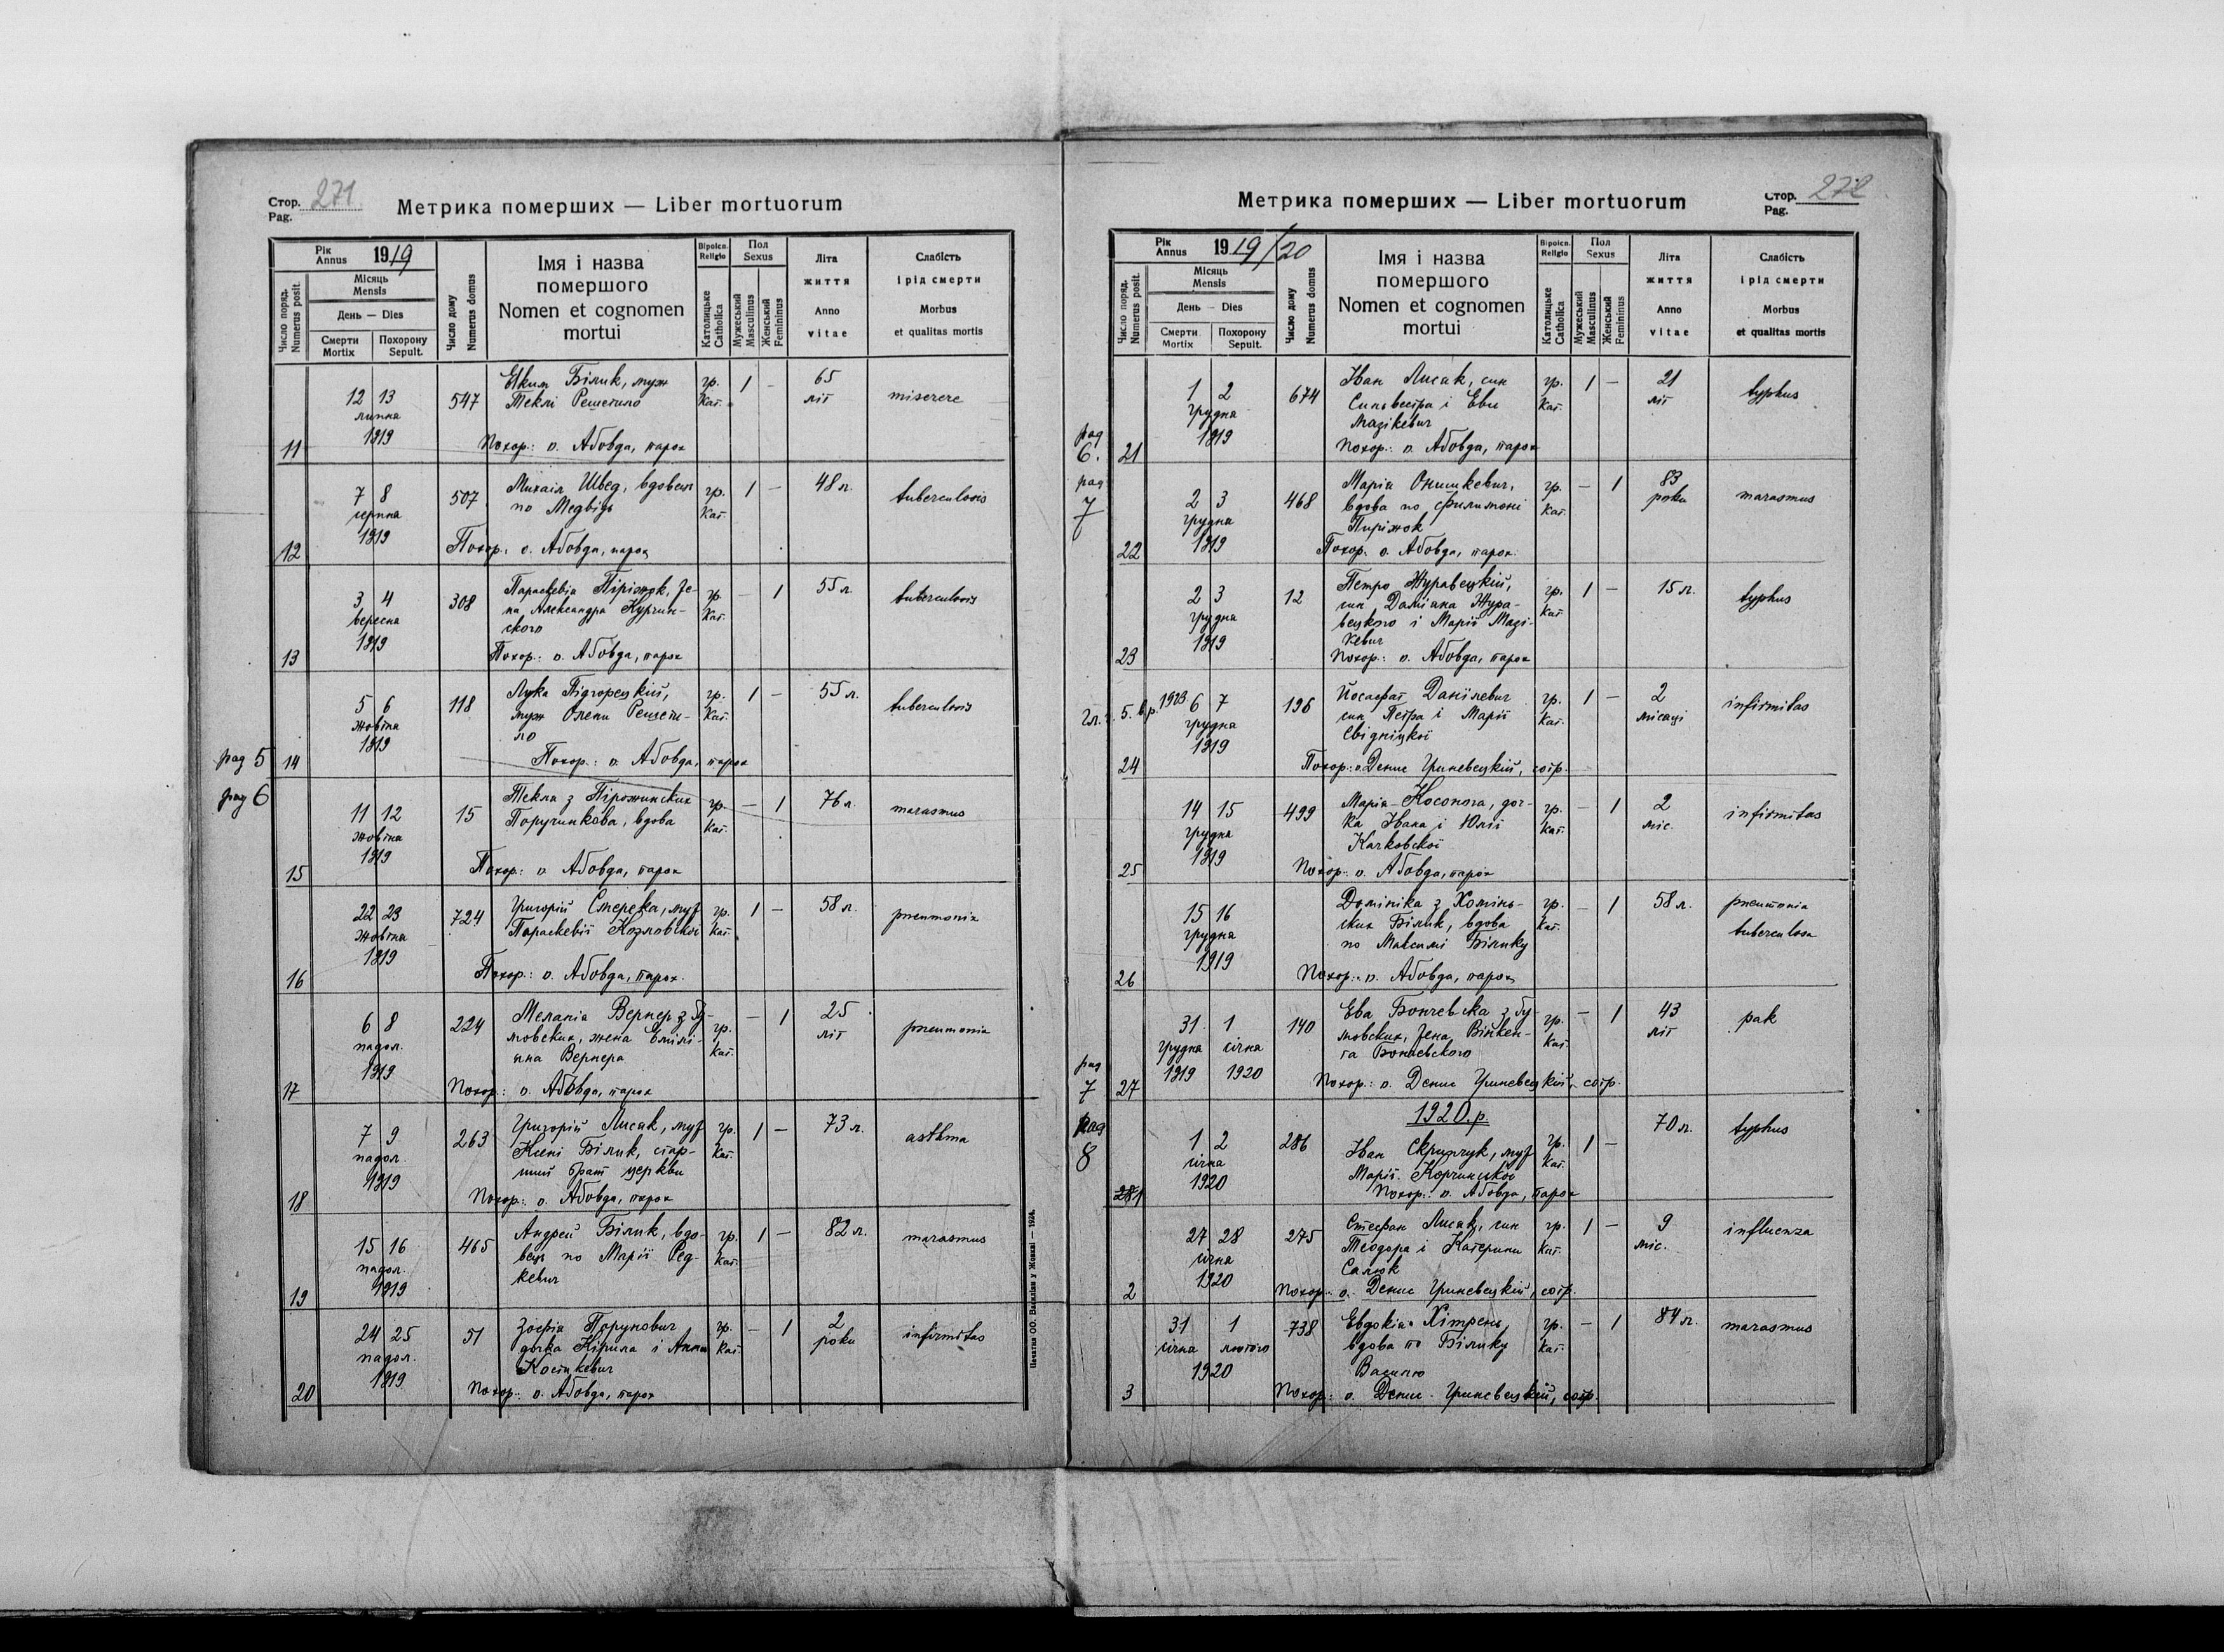 Стор. 271
Pag.
Метрика померших — Liber mortuorum
Рік
Annus 1919
Число поряд.
Numerus posit.
Місяць
Mensis
День — Dies
Смерти
Mortix
Похорону
Sepult.
Число дому
Numerus domus
Імя і назва
помершого
Nomen et cognomen
mortui
Віроісп.
Religio
Католицьке
Catholica
Пол
Sexus
Мужеський
Masculinus
Женський
Femininus
Літа
життя
Anno
vitae
Слабість
і рід смерти
Morbus
et qualitas mortis
11 12 13 липня 1919 547 Яким Білик, муж гр. кат. 1 – 65 літ miserere
Теклі Решетило
Похор.: о. Абовда, парох
12 7 8 серпня 1919 507 Михаіл Швед, вдовець гр. кат. 1 – 48 л. tuberculosis
по Медвідь
Похор. о. Абовда, парох
13 3 4 вересня 1919 308 Параскевія Піріжок, же- гр. кат. – 1 55 л. tuberculosis
на Александра Курчин-
ского
Похор.: о. Абовда, парох
ряд 5
14 5 6 жовтня 1919 118 Лука Підгорецкій, гр. кат. 1 – 55 л. tuberculosis
муж Олени Решети-
ло
Похор.: о. Абовда, парох
ряд 6
15 11 12 жовтня 1919 15 Текла з Пірожинских гр. кат. – 1 76 л. marasmus
Поручинкова, вдова
Похор: о Абовда, парох
16 22 23 жовтня 1919 724 Григорій Смерека, муж гр. кат. 1 – 58 л. pneumonia
Параскевії Козловскої
Похор.: о. Абовда, парох.
17 6 8 падол. 1919 224 Меланія Вернер з Бу- гр. кат. – 1 25 літ pneumonia
мовских, жена Емілі-
яна Вернера
Похор: о. Абовда, парох
18 7 9 падол. 1919 263 Григорій Лисак, муж гр. кат. 1 – 73 л. asthma
Ксені Білик, стар-
ший брат церкви
Похор: о. Абовда, парох
19 15 16 падол. 1919 465 Андрей Білик, вдо- гр. кат. 1 – 82 л. marasmus
вець по Марії Ред
кевич
20 24 25 падол. 1919 51 Зофія Порунович гр. кат. – 1 2 роки infirmitas
дочка Кірила і Анни
Костикевич
Похор: о. Абовда, парох
Печатня ОО. Василіян у Жовкві — 1924.
Стор. 272
Pag.
Метрика померших — Liber mortuorum
Рік
Annus 1919/20
Число поряд.
Numerus posit.
Місяць
Mensis
День — Dies
Смерти
Mortix
Похорону
Sepult.
Число дому
Numerus domus
Імя і назва
помершого
Nomen et cognomen
mortui
Віроісп.
Religio
Католицьке
Catholica
Пол
Sexus
Мужеський
Masculinus
Женський
Femininus
Літа
життя
Anno
vitae
Слабість
і рід смерти
Morbus
et qualitas mortis
ряд 6.
21 1 2 грудня 1919 674 Іван Лисак, син гр. кат. 1 – 21 літ typhus
Сильвестра і Еви
Мазікевич
Похор: о. Абовда, парох
ряд 7
22 2 3 грудня 1919 468 Марія Онишкевич, гр. кат. – 1 83 роки marasmus
вдова по Филимоні
Пиріжок
Похор. о. Абовда, парох.
23 2 3 грудня 1919 12 Петро Журавецкій, гр. кат. 1 – 15 л. typhus
син Даміяна Жура-
вецкого і Марії Мазі-
кевич
Похор: о. Абовда, парох
24 6 7 грудня 1919 196 Йосафат Данілевич гр. кат. 1 – 2 місяці infirmitas
син Петра і Марії
Свідніцкої
Похор: о Денис Гриневецкій, сотр.
25 14 15 грудня 1919 499 Марія Косоного, доч- гр. кат. – 1 2 міс. infirmitas
ка Івана і Юлії
Качковскої
Похор: о. Абовда, парох
26 15 16 грудня 1919 Домініка з Хомінь- гр. кат. – 1 58 л. pneumonia
ских Білик, вдова tuberculosa
по Максимі Білику
Похор.: о. Абовда, парох
27 31 1 грудня січня 1919 1920 140 Ева Бончевска з Бу- гр. кат. – 1 43 літ рак
мовских, жена Вінкен-
та Бончевского
Похор: о. Денис Гриневецкій, сотр.
ряд 7
ряд 8
1920 р.
1 1 2 січня 1920 286 Іван Скрипчук, муж гр. кат. 1 – 70 л. typhus
Марії Корчинської
Похор.: о. Абовда, парох
2 27 28 січня 1920 275 Стефан Лисак, син гр. кат. 1 – 9 міс. influenza
Теодора і Катерини
Салюк
Похор: о. Денис Гриневецкій, сотр.
3 31 1 січня лютого 1920 738 Евдокія Хітрень, гр. кат. – 1 84 л. marasmus
вдова по Білику
Василю
Похор: о. Денис Гриневецкій, сотр.